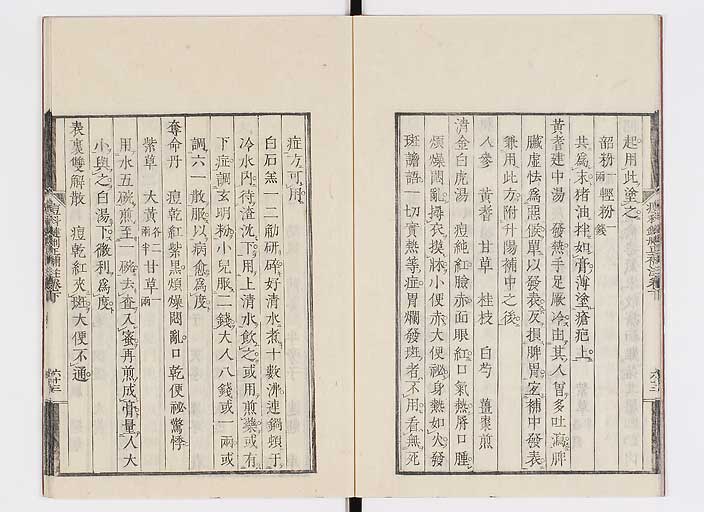 起用此塗之
韶粉一兩 輕粉一錢
共為末猪油拌如膏薄塗瘡疤上
黃耆建中湯 發熱手足厥冷由其人曾多吐瀉脾
臟虛怯為惡候單以發表反損脾胃宜補中發表
兼用此方附升陽補中之後
人參 黃耆 甘草 桂枝 白芍 薑棗煎
清金白虎湯 痘純紅臉赤面眼紅口氣熱唇口腫
煩燥悶亂撏衣摸牀小便赤大便祕身熱如火發
斑譫語一切實熱等症胃爛發斑者不用看無死
症方可用
白石羔一二觔研碎好清水煮十數沸連鍋頓于
冷水內待渣沉下用上清水飲之或用煎藥或有
下症調玄明粉小兒服二錢大人八錢或一兩或
調六一散服以病愈為度
奪命丹 痘乾紅紫黑煩燥悶亂口乾便祕驚悸
紫草 大黃各二兩半 甘草一兩
用水五碗煎至一碗去查入蜜再煎成膏量人大
小與之白湯下微利為度
表裏雙解散 痘乾紅夾斑大便不通